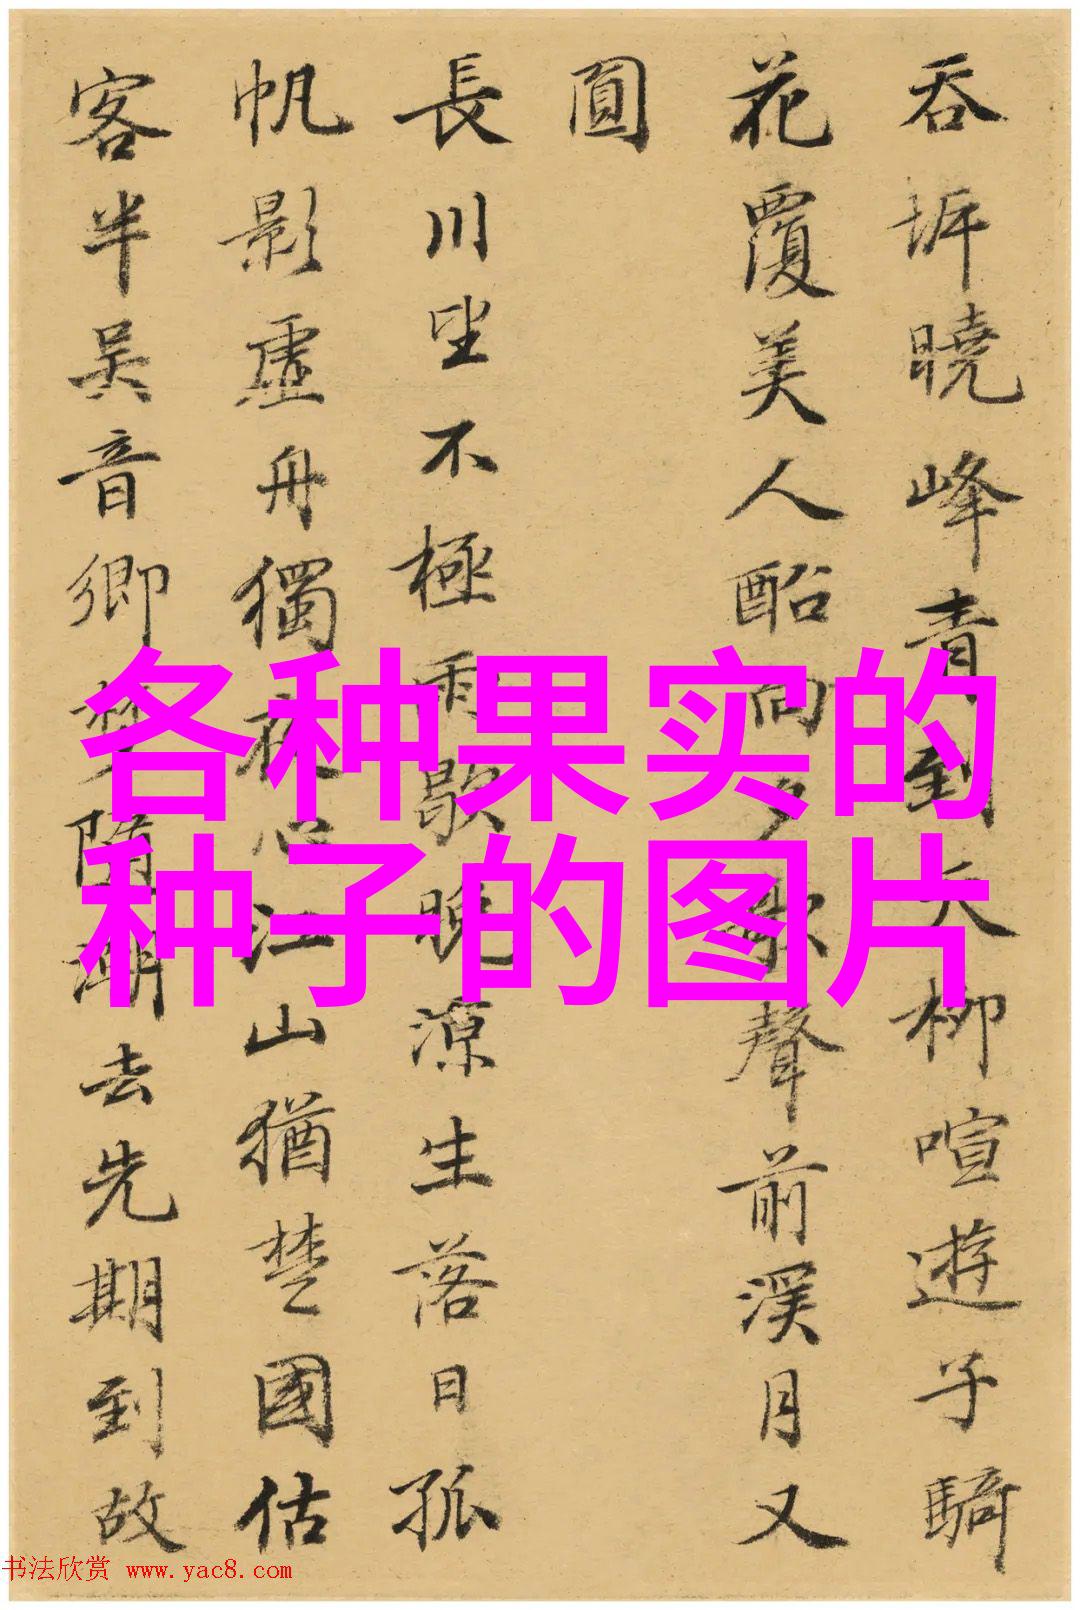 吞坼曉峰青到天柳喧遊子騎
花覆美人船向夕歌聲前溪月又
圓
長川望不極雨歇晚涼生落日孤
帆影虛舟獨夜心江山猶楚國估
客半吳音鄉夢隨潮去先期到故
各种果实的
种子的图片
书法欣赏 www.yac8.com